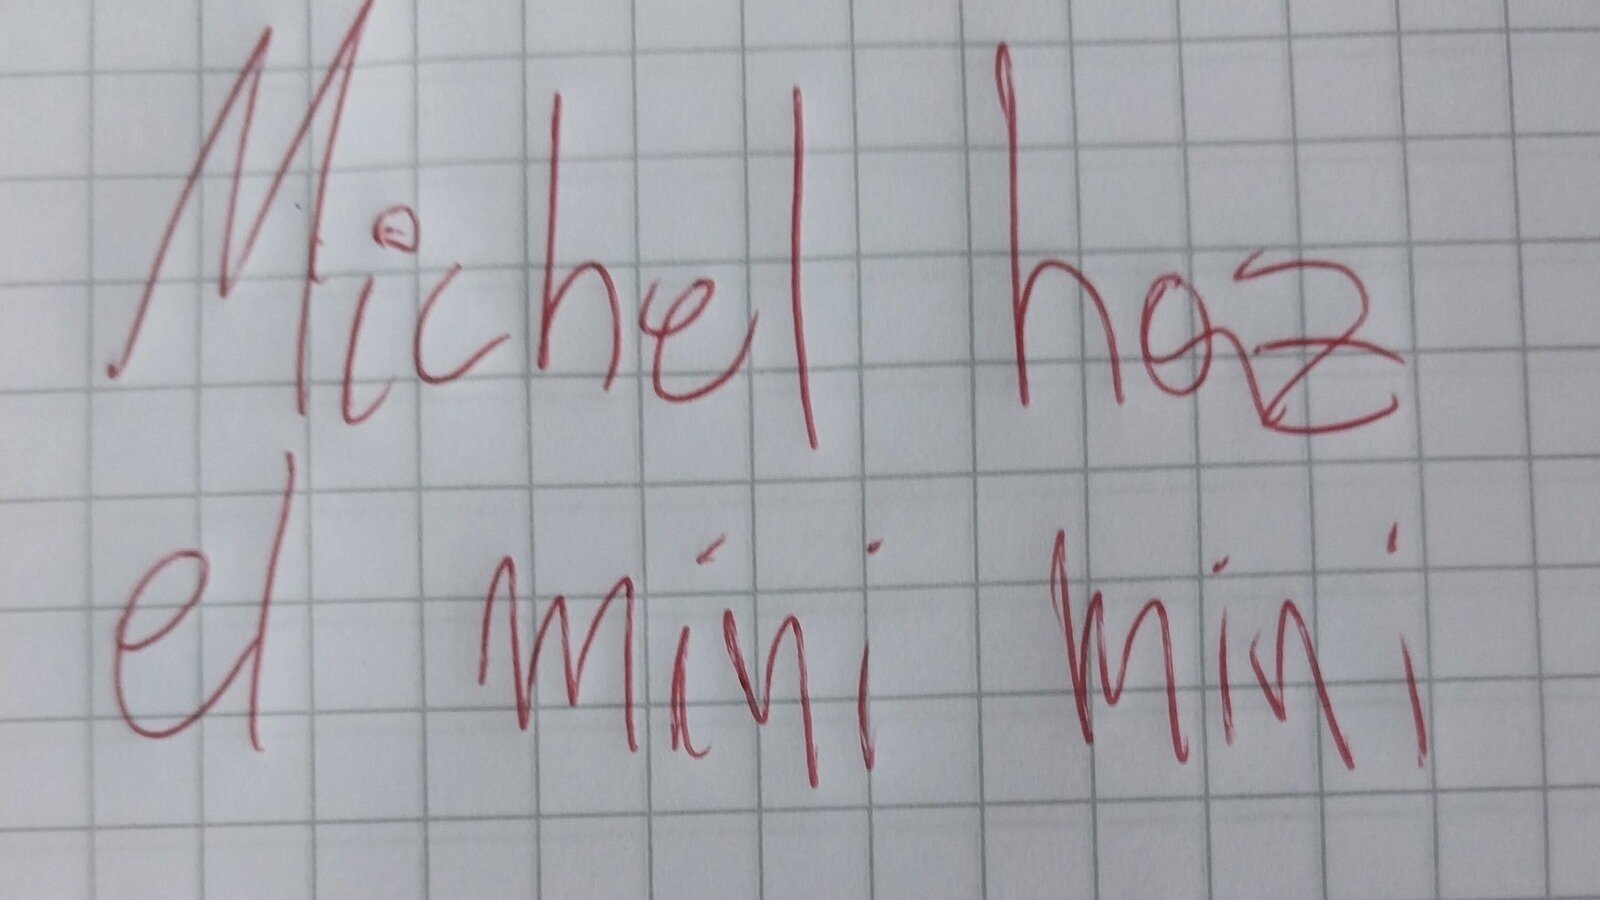 Michel haz
el mini mini